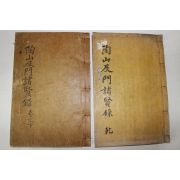 陶山及門諸賢錄 乾
陶山及門諸賢錄